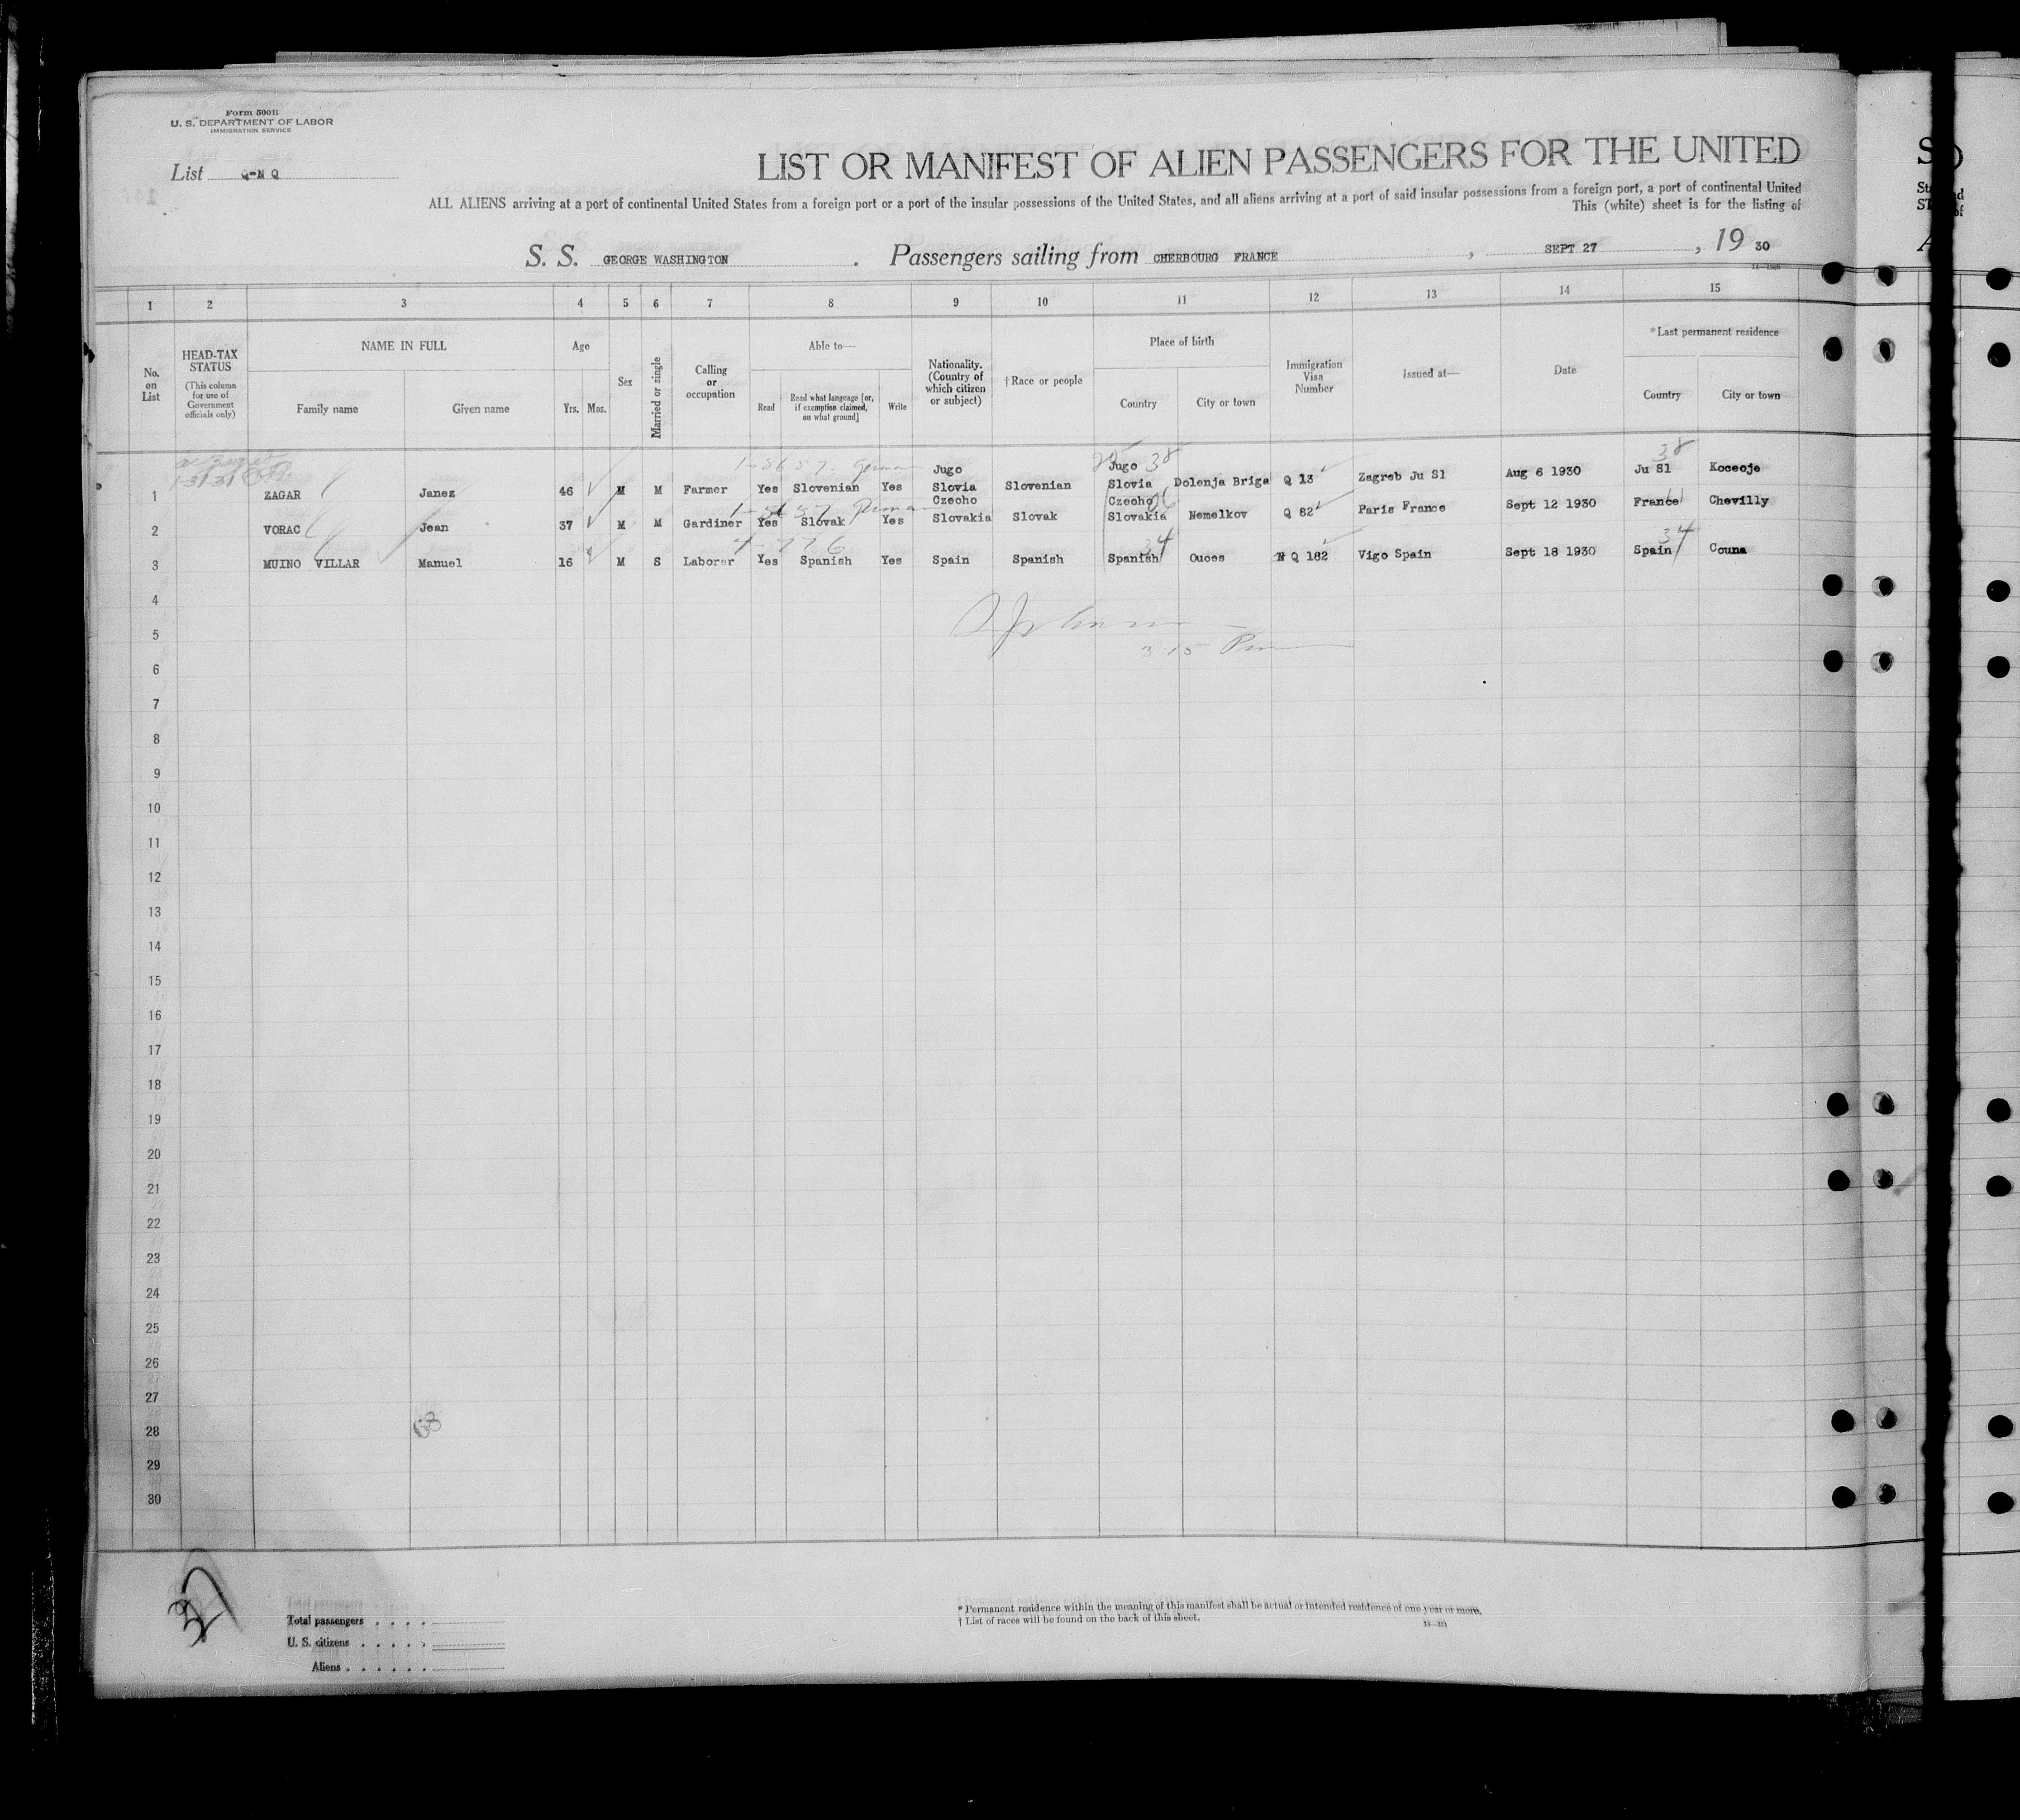 Form 500B
U. S. DEPARTMENT OF LABOR
IMMIGRATION SERVICE
List Q-N Q
LIST OR MANIFEST OF ALIEN PASSENGERS FOR THE UNITED
ALL ALIENS arriving at a port of continental United States from a foreign port or a port of the insular possessions of the United States, and all aliens arriving at a port of said insular possessions from a foreign port, a port of continental United
This (white) sheet is for the listing of
S. S. GEORGE WASHINGTON . Passengers sailing from CHERBOURG FRANCE , SEPT 27 , 19 30
1 2 3 4 5 6 7 8 9 10 11 12 13 14 15
No. on List
HEAD-TAX STATUS
(This column for use of Government officials only)
NAME IN FULL
Family name
Given name
Age
Yrs. Mos.
Sex
Married or single
Calling or occupation
Able to—
Read
Read what language [or, if exemption claimed, on what ground]
Write
Nationality. (Country of which citizen or subject)
† Race or people
Place of birth
Country
City or town
Immigration Visa Number
Issued at—
Date
* Last permanent residence
Country
City or town
1-5657 German 38 38
1 ZAGAR Janez 46 M M Farmer Yes Slovenian Yes Jugo Slovia Slovenian Jugo Slovia Dolenja Briga Q 13 Zagreb Ju Sl Aug 6 1930 Ju Sl Koceoje
1-5657 German
2 VORAC Jean 37 M M Gardiner Yes Slovak Yes Czecho Slovakia Slovak Czecho Slovakia Nemelkov Q 82 Paris France Sept 12 1930 France Chevilly
4-776 34 34
3 MUINO VILLAR Manuel 16 M S Laborer Yes Spanish Yes Spain Spanish Spanish Ouces N Q 182 Vigo Spain Sept 18 1930 Spain Couna
4
5
3 15 Pm
6
7
8
9
10
11
12
13
14
15
16
17
18
19
20
21
22
23
24
25
26
27
28 68
29
30
37
Total passengers . . . .
U. S. citizens . . . . .
Aliens . . . . . .
* Permanent residence within the meaning of this manifest shall be actual or intended residence of one year or more.
† List of races will be found on the back of this sheet.